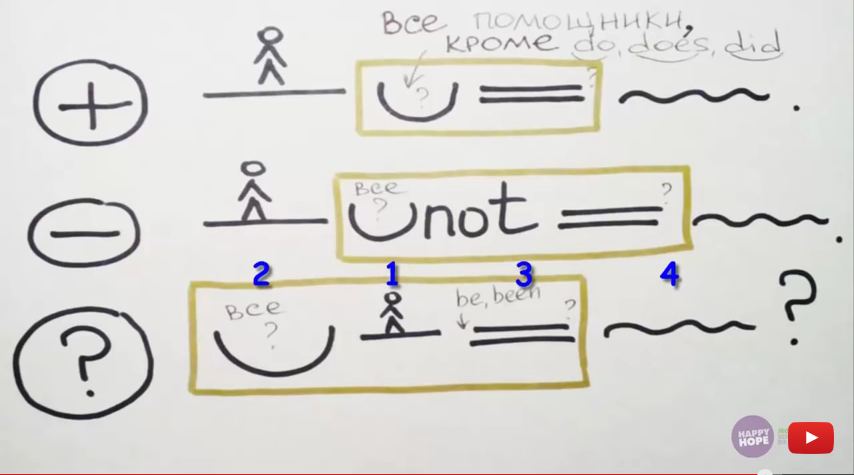 Все помощники,
кроме do, does, did
+ ? ?
.
все
? ?
− not
.
2 1 3 4
be, been
все
? ?
? ?
HAPPY
HOPE